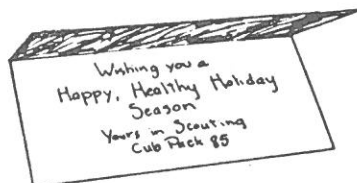 Wishing you a
Happy, Healthy Holiday
Season
Yours in Scouting
Cub Pack 85